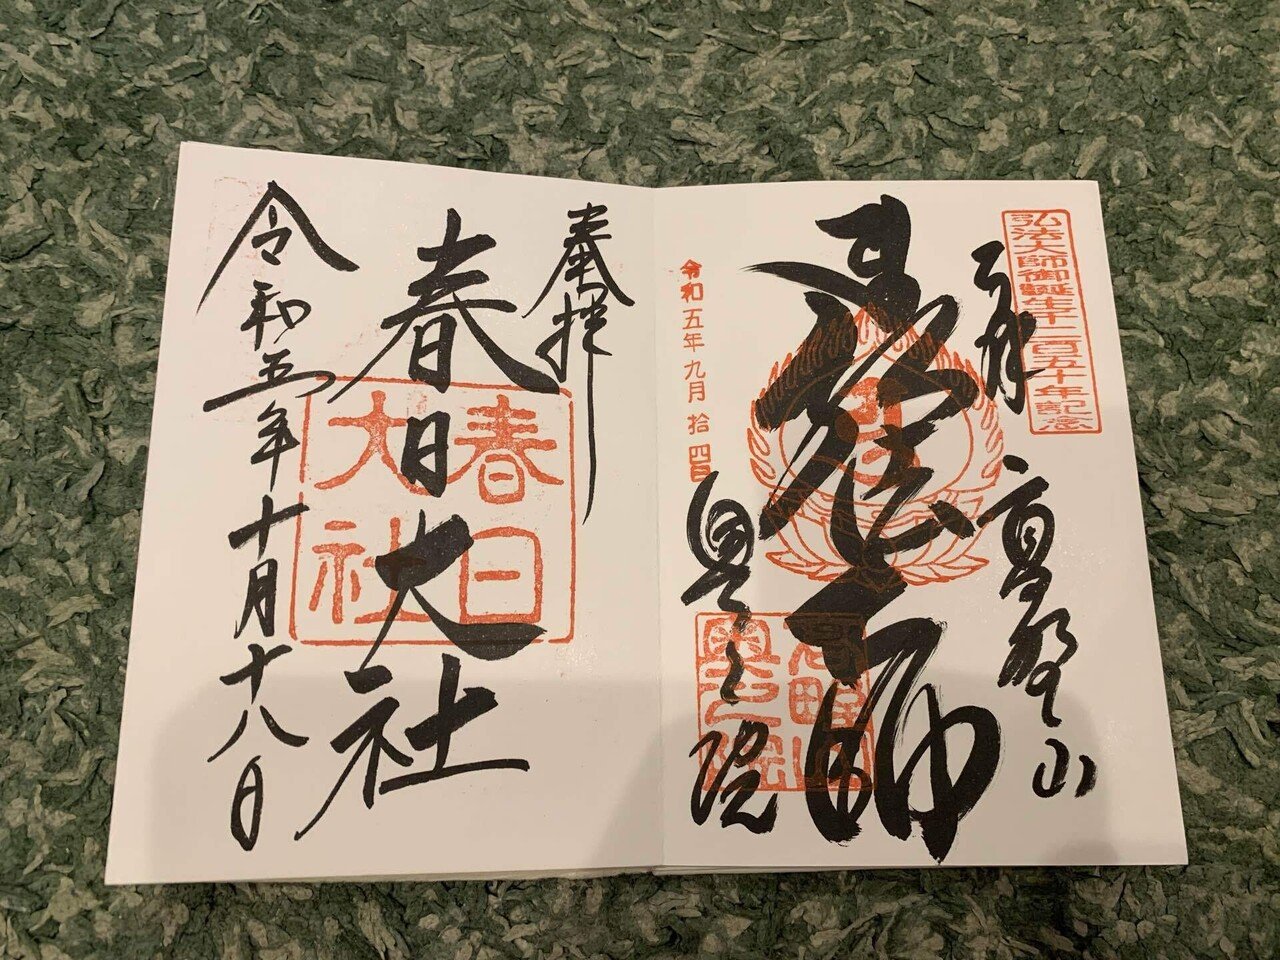 弘法大師御誕生千二百五十年記念
奉拝
高野山
弘法大師
高野山
奥之院
奥之院
令和五年九月拾四日
奉拝
春日大社
春日
大社
令和五年十月十八日